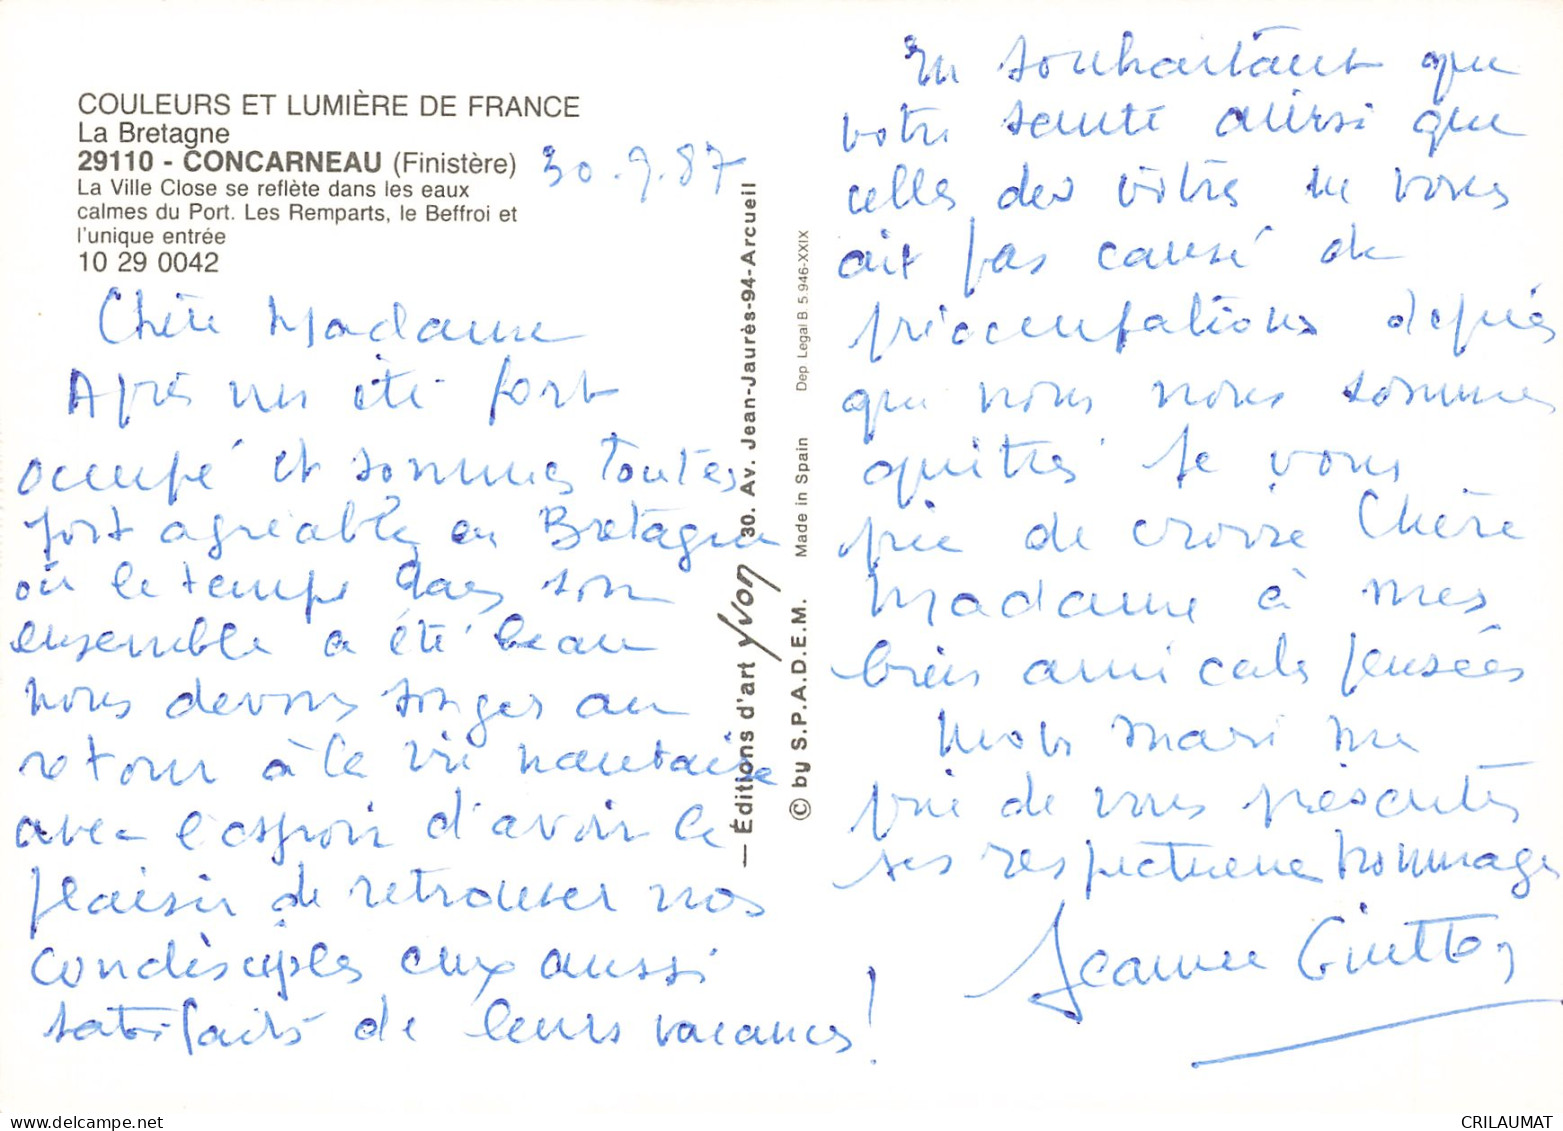 COULEURS ET LUMIÈRE DE FRANCE
La Bretagne
29110 - CONCARNEAU (Finistère)
La Ville Close se reflète dans les eaux
calmes du Port. Les Remparts, le Beffroi et
l'unique entrée
10 29 0042
30.9.87
Chère Madame
Après un été fort
occupé et sommes toutes
fort agréable en Bretagne
où le temps dans son
ensemble a été beau
nous devons songer au
retour à la vie nantaise
avec l'espoir d'avoir le
plaisir de retrouver nos
condisciples eux aussi
satisfaits de leurs vacances !
— Éditions d'art Yvon 30. Av. Jean-Jaurès-94-Arcueil
© by S.P.A.D.E.M. Made in Spain Dep Legal B 5 946-XXIX
En souhaitant que
votre santé ainsi que
celles des vôtres ne vous
ait pas causé de
préoccupations depuis
que nous nous sommes
quittés je vous
prie de croire Chère
Madame à mes
bien amicales pensées
Mon mari me
prie de vous présenter
ses respectueux hommages
Jeanne Guitton
CRILAUMAT